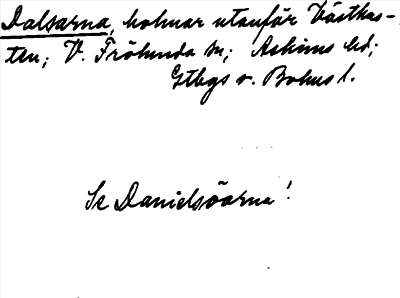 Dalsarna, holmar utanför Västkus-
ten; V. Frölunda sn; Askims hd;
Gtbgs o. Bohus l.
Se Danielsöarna!